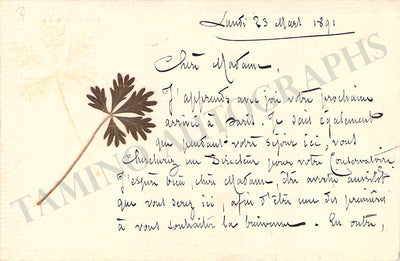 Lundi 23 Mars 1891
Chère Madame,
J'apprends avec joie votre prochaine
arrivée à Paris. Je sais également
que pendant votre séjour ici, vous
chercherez un Directeur pour votre Conservatoire
J'espère bien, chère Madame, être avertie aussitôt
que vous serez ici, afin d'être une des premières
à vous souhaiter la bienvenue. En outre,
TAMINO AUTOGRAPHS